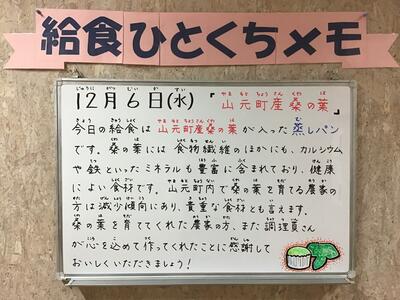 給食ひとくちメモ
12月6日(水) 『山元町産桑の葉』
今日の給食は山元町産桑の葉が入った蒸しパン
です。桑の葉には食物繊維のほかにも、カルシウム
や鉄といったミネラルも豊富に含まれており、健康
によい食材です。山元町内で桑の葉を育てる農家の
方は減少傾向にあり、貴重な食材とも言えます。
桑の葉を育ててくれた農家の方、また調理員さん
が心を込めて作ってくれたことに感謝して
おいしくいただきましょう！